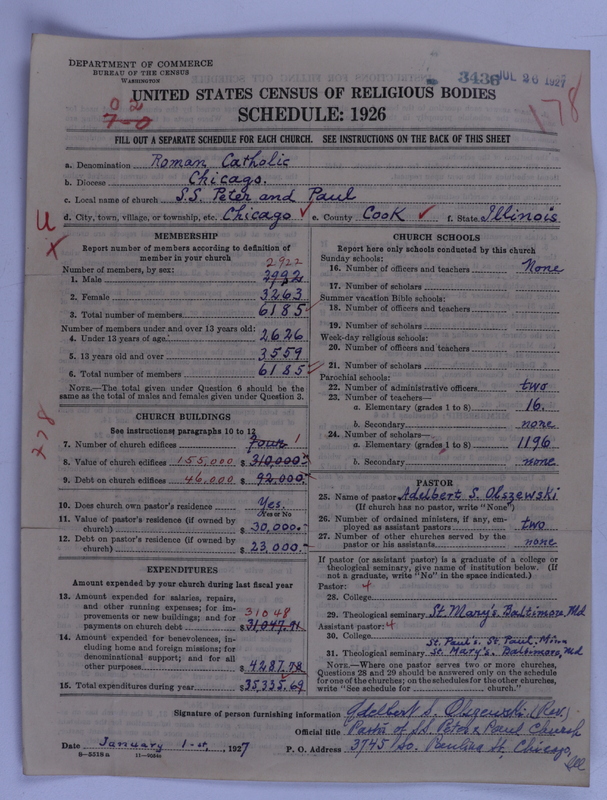 DEPARTMENT OF COMMERCE
BUREAU OF THE CENSUS
WASHINGTON
3436 JUL 26 1927
178
UNITED STATES CENSUS OF RELIGIOUS BODIES
0 2
7-0
SCHEDULE: 1926
FILL OUT A SEPARATE SCHEDULE FOR EACH CHURCH. SEE INSTRUCTIONS ON THE BACK OF THIS SHEET
a. Denomination Roman Catholic
b. Diocese Chicago.
c. Local name of church S.S. Peter and Paul
d. City, town, village, or township, etc. Chicago e. County Cook f. State Illinois
MEMBERSHIP
Report number of members according to definition of
member in your church
2922
Number of members, by sex:
1. Male 2992
2. Female 3263
3. Total number of members 6185
Number of members under and over 13 years old:
4. Under 13 years of age 2626
5. 13 years old and over 3559
6. Total number of members 6185
NOTE.—The total given under Question 6 should be the
same as the total of males and females given under Question 3.
CHURCH BUILDINGS
See instructions, paragraphs 10 to 12
7. Number of church edifices Four 1
8. Value of church edifices 155,000 $ 310,000.-
9. Debt on church edifices 46,000 $ 92,000.-
10. Does church own pastor's residence Yes.
Yes or No
11. Value of pastor's residence (if owned by
church) $ 30,000.-
12. Debt on pastor's residence (if owned by
church) $ 23,000.-
EXPENDITURES
Amount expended by your church during last fiscal year
13. Amount expended for salaries, repairs,
and other running expenses; for im-
provements or new buildings; and for
31048
payments on church debt $ 31,047.91
14. Amount expended for benevolences, in-
cluding home and foreign missions; for
denominational support; and for all
other purposes $ 4287.78
15. Total expenditures during year $ 35,335.69
CHURCH SCHOOLS
Report here only schools conducted by this church
Sunday schools:
16. Number of officers and teachers None
17. Number of scholars
Summer vacation Bible schools:
18. Number of officers and teachers
19. Number of scholars
Week-day religious schools:
20. Number of officers and teachers
21. Number of scholars
Parochial schools:
22. Number of administrative officers two
23. Number of teachers—
a. Elementary (grades 1 to 8) 16.
b. Secondary none
24. Number of scholars—
a. Elementary (grades 1 to 8) 1196
b. Secondary none
PASTOR
25. Name of pastor Adelbert S. Olszewski
(If church has no pastor, write "None")
26. Number of ordained ministers, if any, em-
ployed as assistant pastors two
27. Number of other churches served by the
pastor or his assistants none
If pastor (or assistant pastor) is a graduate of a college or
theological seminary, give name of institution below. (If
not a graduate, write "No" in the space indicated.)
Pastor: 4
28. College
29. Theological seminary St. Mary's. Baltimore, Md
Assistant pastor: 4
30. College
St. Paul's. St. Paul, Minn
31. Theological seminary St. Mary's. Baltimore, Md
NOTE.—Where one pastor serves two or more churches,
Questions 28 and 29 should be answered only on the schedule
for one of the churches; on the schedules for the other churches,
write "See schedule for church."
Signature of person furnishing information Adelbert S. Olszewski, (Rev.)
Official title Pastor of SS. Peter & Paul Church
Date January 1-st, 1927
P. O. Address 3745 So. Paulina St. Chicago,
Ill
8-5518a 11-9054